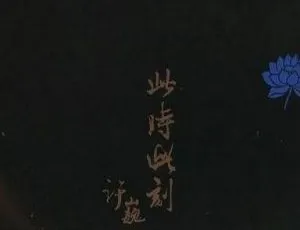 此时此刻
许巍